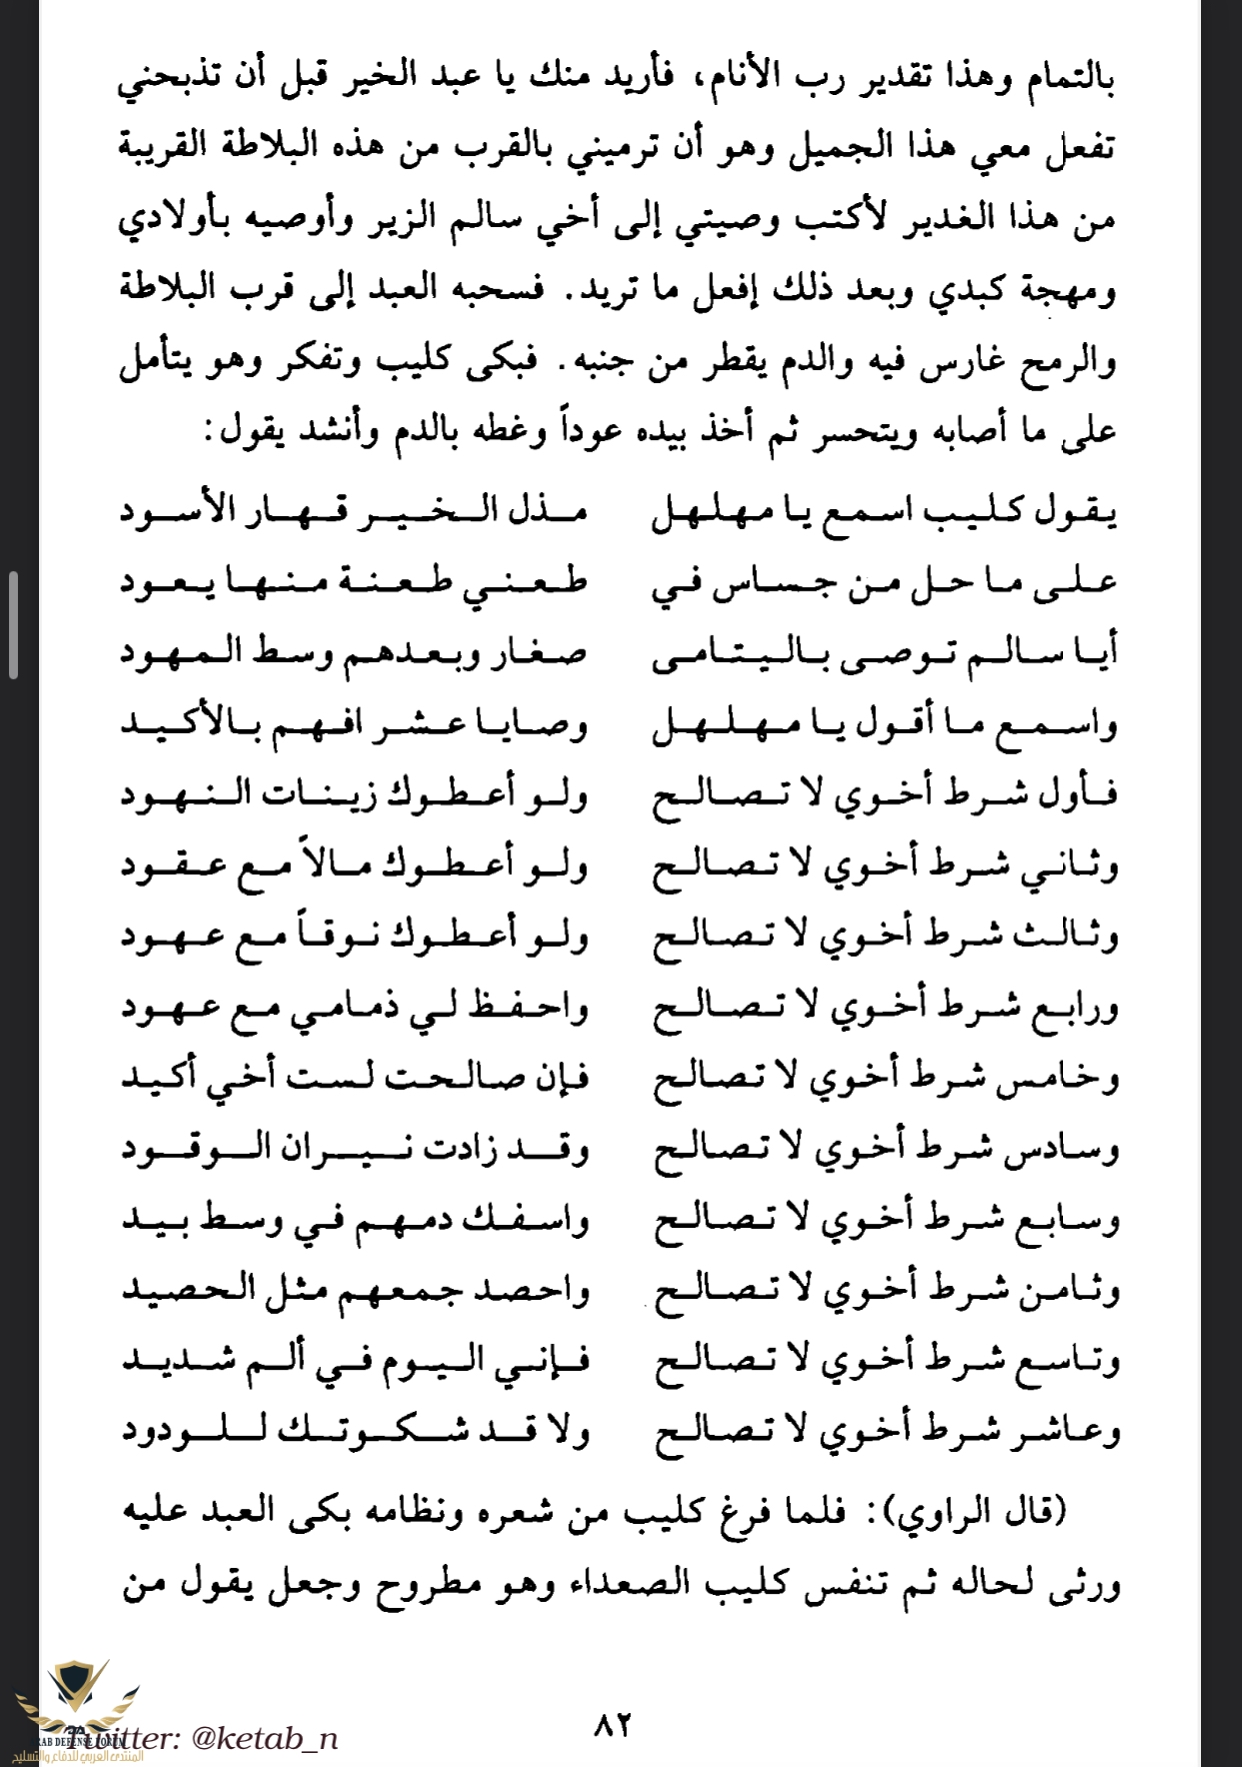 بالتمام وهذا تقدير رب الأنام، فأريد منك يا عبد الخير قبل أن تذبحني
تفعل معي هذا الجميل وهو أن ترميني بالقرب من هذه البلاطة القريبة
من هذا الغدير لأكتب وصيتي إلى أخي سالم الزير وأوصيه بأولادي
ومهجة كبدي وبعد ذلك إفعل ما تريد. فسحبه العبد إلى قرب البلاطة
والرمح غارس فيه والدم يقطر من جنبه. فبكى كليب وتفكر وهو يتأمل
على ما أصابه ويتحسر ثم أخذ بيده عوداً وغطه بالدم وأنشد يقول:
يقول كليب اسمع يا مهلهل مذل الخير قهار الأسود
على ما حل من جساس في طعني طعنة منها يعود
أيا سالم توصى باليتامى صغار وبعدهم وسط المهود
واسمع ما أقول يا مهلهل وصايا عشر افهم بالأكيد
فأول شرط أخوي لا تصالح ولو أعطوك زينات النهود
وثاني شرط أخوي لا تصالح ولو أعطوك مالاً مع عقود
وثالث شرط أخوي لا تصالح ولو أعطوك نوقاً مع عهود
ورابع شرط أخوي لا تصالح واحفظ لي ذمامي مع عهود
وخامس شرط أخوي لا تصالح فإن صالحت لست أخي أكيد
وسادس شرط أخوي لا تصالح وقد زادت نيران الوقود
وسابع شرط أخوي لا تصالح واسفك دمهم في وسط بيد
وثامن شرط أخوي لا تصالح واحصد جمعهم مثل الحصيد
وتاسع شرط أخوي لا تصالح فإني اليوم في ألم شديد
وعاشر شرط أخوي لا تصالح ولا قد شكوتك للودود
(قال الراوي): فلما فرغ كليب من شعره ونظامه بكى العبد عليه
ورثى لحاله ثم تنفس كليب الصعداء وهو مطروح وجعل يقول من
٨٢
Twitter: @ketab_n
ARAB DEFENSE FORUM
المنتدى العربي للدفاع والتسليح